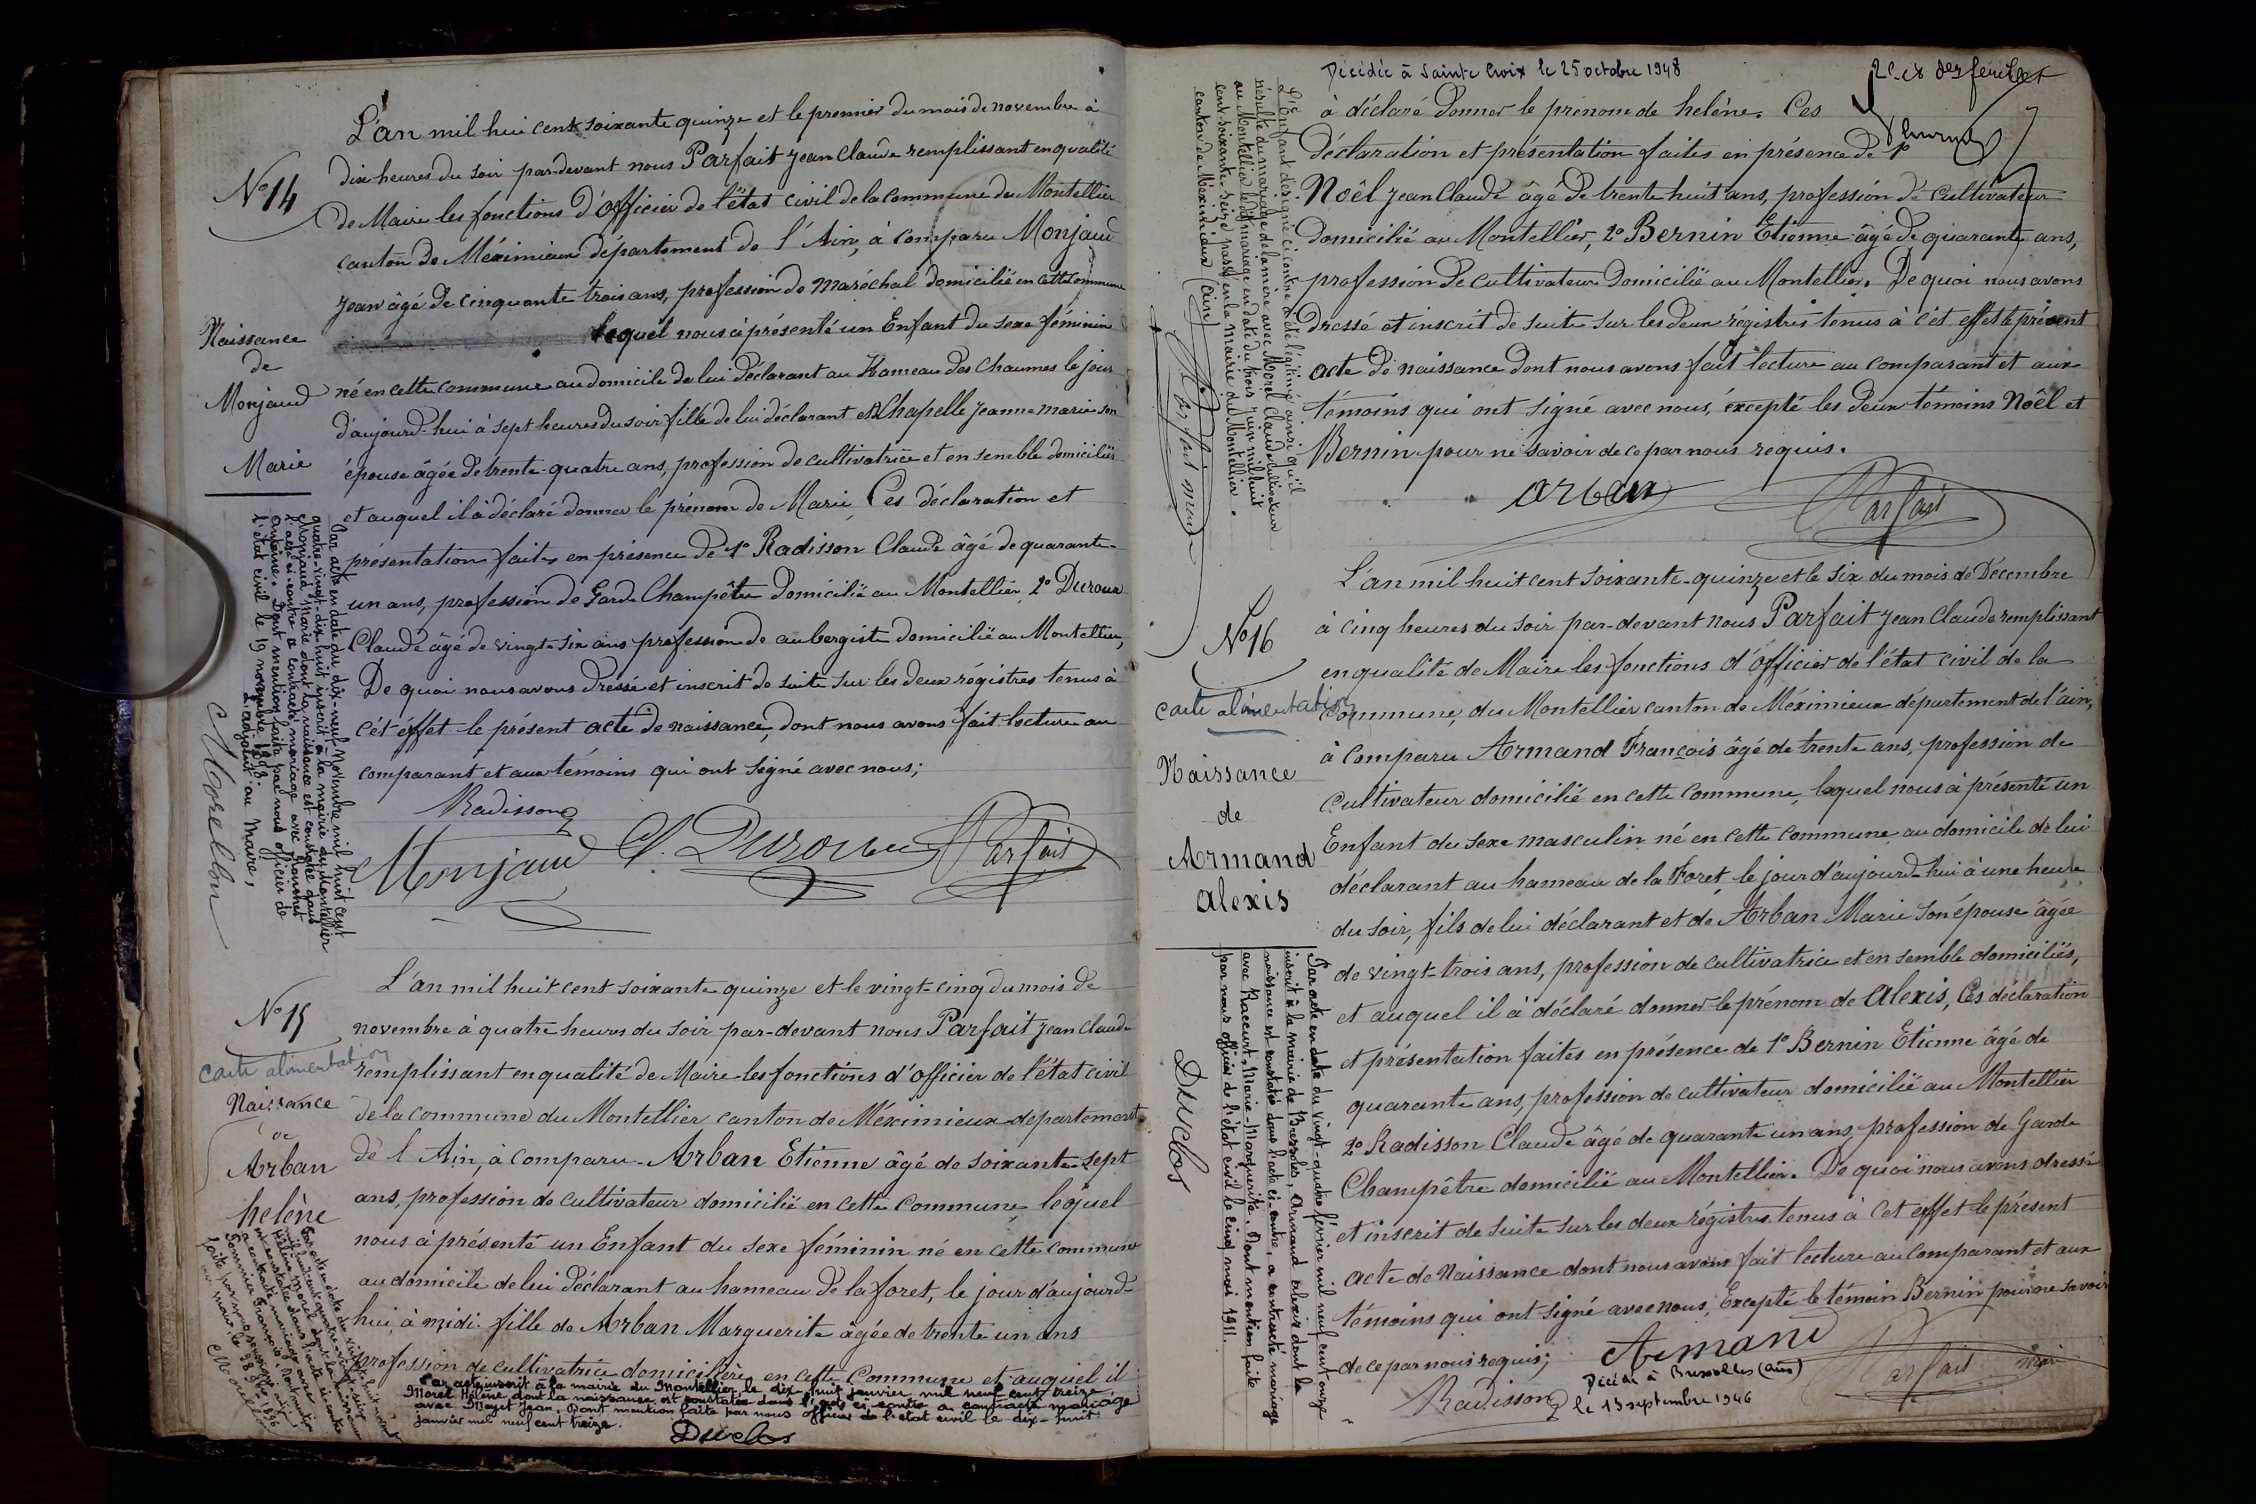 L'an mil hui cent soixante quinze et le premier du mois de novembre à
dix heures du soir par-devant nous Parfait Jean Claude remplissant en qualité
N° 14
de Maire les fonctions d'Officier de l'état civil de la commune du Montellier
canton de Méximieux département de l'Ain, à comparu Monjaud
Jean âgé de cinquante trois ans, profession de Maréchal domicilié en cette commune
lequel nous à présenté un Enfant du sexe féminin
Naissance
de
Monjaud
Marie
né en cette commune au domicile de lui déclarant au Hameau des Chaumes le jour
d'aujourd-hui à sept heures du soir fille de lui déclarant et Chapelle Jeanne Marie son
épouse âgée de trente-quatre ans, profession de cultivatrice et en semble domiciliés
et auquel il à déclaré donner le prénom de Marie, Ces déclaration et
présentation faites en présence de 1° Radisson Claude âgé de quarante-
un ans, profession de Garde Champêtre domicilié au Montellier, 2° Duroux
Claude âgé de vingt-six ans profession de aubergiste domicilié au Montellier,
De quoi nous avons dressé et inscrit de suite sur les deux régistres tenus à
cét éffet le présent acte de naissance, dont nous avons fait lecture au
comparant et aux témoins qui ont signé avec nous;
Radisson
Monjaud C. Duroux Parfait
Par acte en date du dix-neuf Novembre mil huit cent
quatre-vingt-dix-huit inscrit à la mairie du Montellier
Monjaud Marie dont la naissance est constatée dans
l'acte ci-contre a contracté mariage avec
Antoine. Dont mention faite par nous officier de
l'état civil le 19 novembre 1898.
L'adjoint au Maire,
Morellon
L'an mil huit cent soixante quinze et le vingt-cinq du mois de
N° 15
novembre à quatre heures du soir par-devant nous Parfait Jean Claude
carte alimentation
remplissant en qualité de Maire les fonctions d'officier de l'état civil
Naissance
de
Arban
helène
de la commune du Montellier canton de Méximieux département
de l'Ain, à comparu Arban Etienne âgé de soixante-sept
ans, profession de cultivateur domicilié en cette commune, lequel
nous à présenté un Enfant du sexe féminin né en cette commune
au domicile de lui déclarant au hameau de la foret, le jour d'aujourd-
hui à midi. fille de Arban Marguerite âgée de trente un ans
profession de cultivatrice domicilière en cette Commune et auquel il
Par acte inscrit à la mairie du Montellier le dix-huit janvier mil neuf cent treize
Morel Hélène dont la naissance est constatée dans l'acte ci-contre a contracté mariage
avec Moyet Jean, dont mention faite par nous officier de l'état civil le dix-huit
janvier mil neuf cent treize.
Duclos
Décédée à Sainte Croix le 25 octobre 1948
à déclaré donner le prénom de helène. Ces
déclaration et présentation faites en présence de 1°
Noêl Jean Claude âgé de trente huit ans, profession de cultivateur
domicilié au Montellier, 2° Bernin Etienne âgé de quarante ans,
profession de cultivateur domicilié au Montellier. De quoi nous avons
dressé et inscrit de suite sur les deux régistres tenus à cét effet le présent
acte de naissance dont nous avons fait lecture au comparant et aux
témoins qui ont signé avec nous, éxcepté les deux témoins Noêl et
Bernin pour ne savoir de ce par nous requis.
arban Parfait
L'Enfant désigné ci-contre a été légitimé ainsi qu'il
résulte du mariage de la mère avec Morel Claude cultivateur
au Montellier le dit mariage en date du trois juin mil huit
cent soixante-seize passé en la mairie du Montellier.
canton de Méximieux (Ain)
Parfait maire
L'an mil huit cent soixante-quinze et le six du mois de Décembre
N° 16
à cinq heures du soir par-devant nous Parfait Jean Claude remplissant
en qualité de Maire les fonctions d'Officier de l'état civil de la
carte alimentation
commune, du Montellier canton de Méximieux département de l'ain,
à comparu Armand François âgé de trente ans, profession de
Naissance
de
Armand
alexis
cultivateur domicilié en cette commune, lequel nous à présenté un
Enfant du sexe masculin né en cette commune au domicile de lui
déclarant au hameau de la Foret le jour d'aujourd-hui à une heure
du soir, fils de lui déclarant et de Arban Marie son épouse âgée
de vingt-trois ans, profession de cultivatrice et en semble domiciliés,
et auquel il à déclaré donner le prénom de Alexis, Ces déclaration
et présentation faites en présence de 1° Bernin Etienne âgé de
quarante ans, profession de cultivateur domicilié au Montellier
2° Radisson Claude âgé de quarante un ans, profession de Garde
Champêtre domicilié au Montellier. De quoi nous avons dressé
et inscrit de suite sur les deux régistres tenus à cet effet le présent
acte de Naissance dont nous avons fait lecture au comparant et aux
témoins qui ont signé avec nous, Excepté le témoin Bernin pour ne savoir
de ce par nous requis;
Armand
Radisson Parfait
Décédé à Bressolles (Ain)
le 13 septembre 1946
Par acte en date du vingt-quatre février mil neuf cent onze
inscrit à la mairie de Bressolles, Armand Alexis dont la
naissance est constatée dans l'acte ci-contre, a contracté mariage
avec Raccurt Marie-Marguerite. Dont mention faite
par nous officier de l'état civil le cinq mai 1911.
Duclos